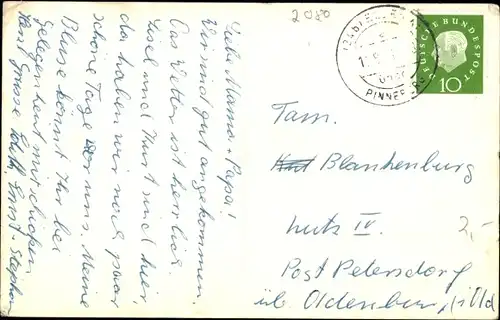 2080
Liebe Mama + Papa!
Wir sind gut angekommen.
Das Wetter ist herrlich.
Lisel und Kurt sind hier,
da haben wir noch paar
schöne Tage vor uns. Meine
Bluse könnt Ihr bei
Gelegenheit mitschicken
Herzl. Grüsse Edith Ernst-Stephan
PINNEBERG
DEUTSCHE BUNDESPOST
10
Fam.
Blankenburg
IV.
2,-
Post Petersdorf
üb. Oldenburg i/Old